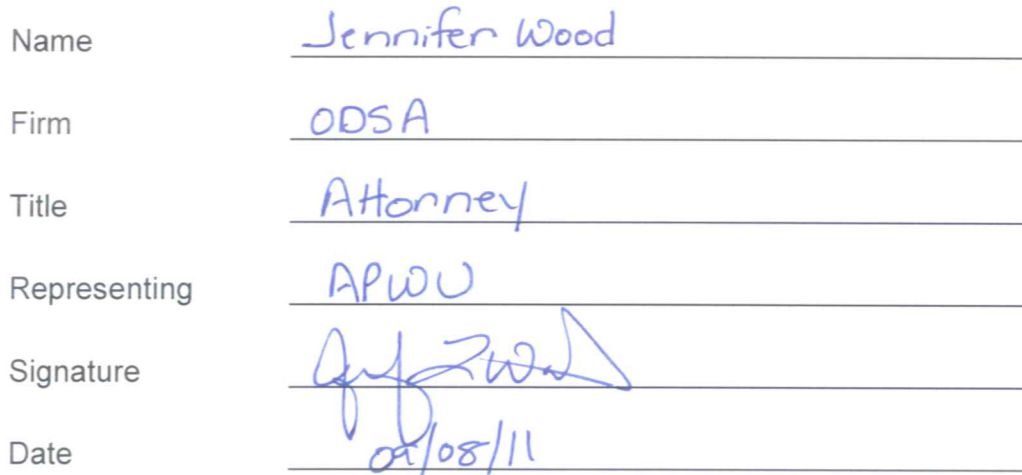 Name Jennifer Wood
Firm ODSA
Title Attorney
Representing APWU
Signature
Date 09/08/11